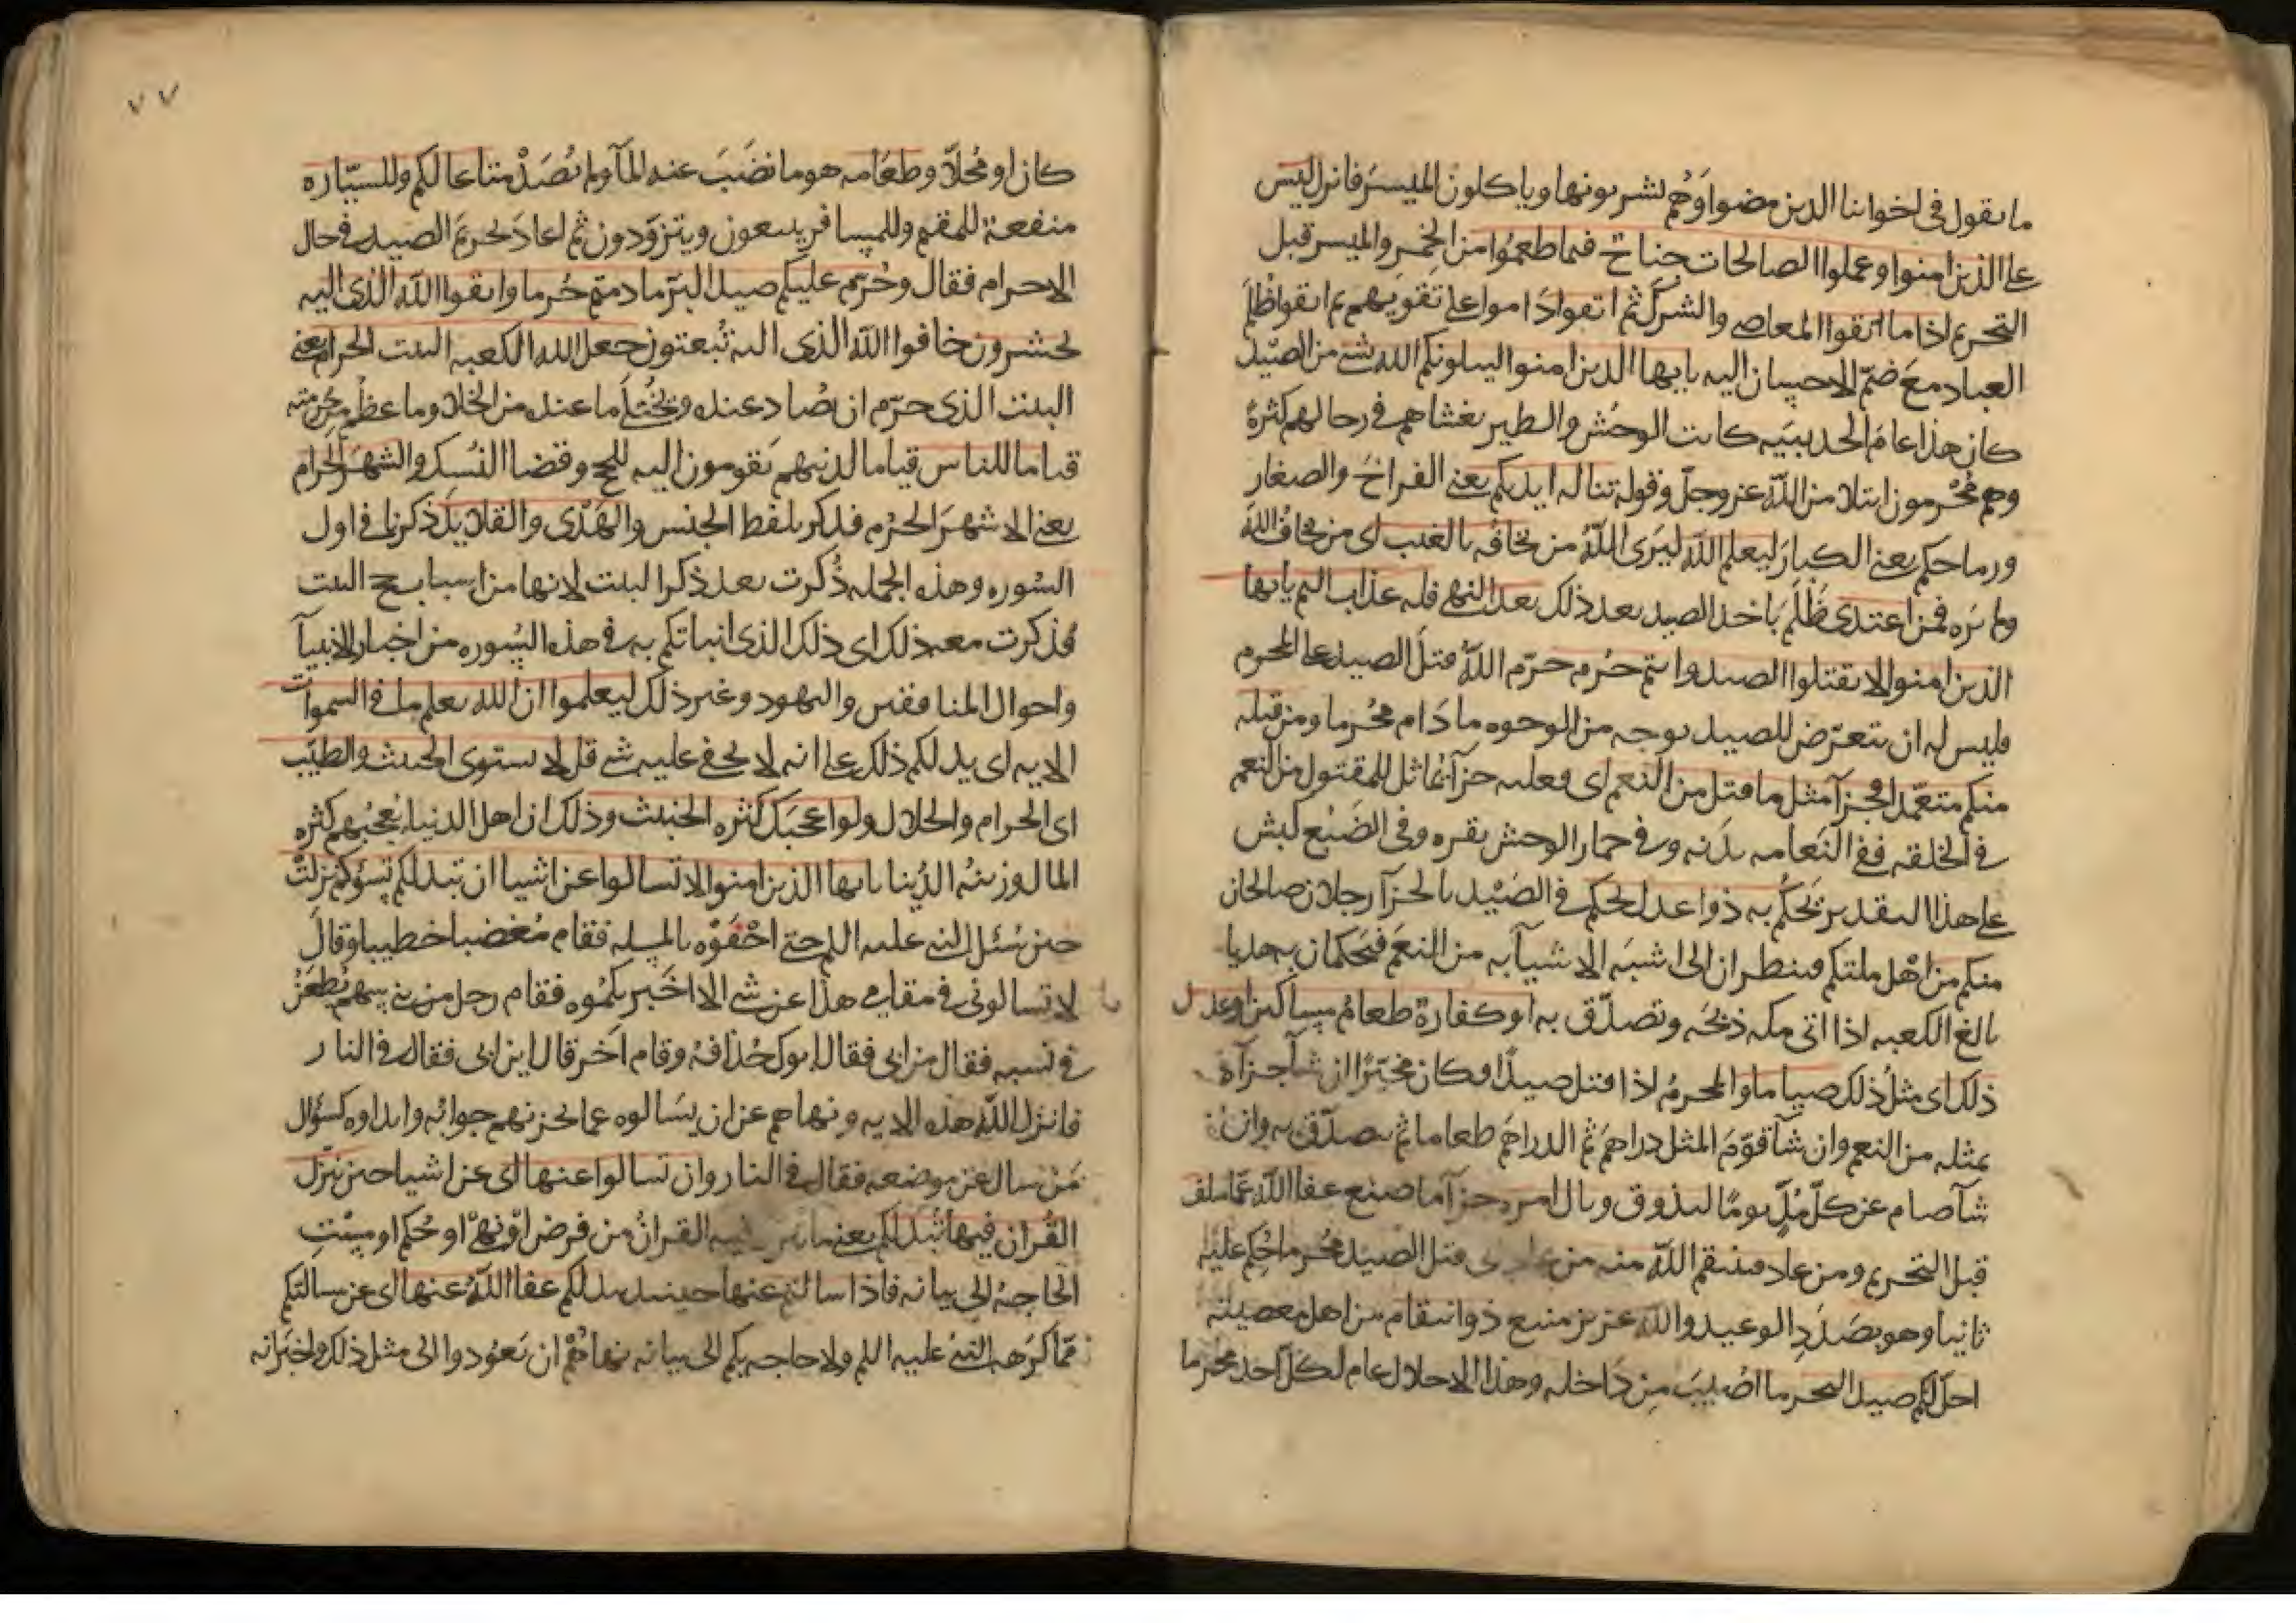 ما نقول في اخواننا الذين مضوا وهم يشربونها وياكلون الميسر فانزل ليس
على الذين امنوا وعملوا الصالحات جناح فيما طعموا من الخمر والميسر قبل
التحريم اذا ما اتقوا المعاصي والشرك ثم اتقوا داموا على تقويهم ثم اتقوا ظلم
العباد مع ضم الاحسان اليه يايها الذين امنوا ليبلونكم الله بشي من الصيد
كان هذا عام الحديبيه كانت الوحش والطير تغشاهم في رحالهم كثرة
وهم محرمون ابتلا من الله عز وجل وقوله تناله ايديكم يعني الفراخ والصغار
ورماحكم يعني الكبار ليعلم الله ليرى الله من يخافه بالغيب اى من يخاف الله
ولم يره فمن اعتدى ظلم باخذ الصيد بعد ذلك بعد النهي فله عذاب اليم يايها
الذين امنوا لا تقتلوا الصيد وانتم حرم حرم الله قتل الصيد على المحرم
فليس له ان يتعرض للصيد بوجه من الوجوه ما دام محرما ومن قتله
منكم متعمدا فجزآ مثل ما قتل من النعم اى فعليه جزآ مماثل للمقتول من النعم
في الخلقه ففي النعامه بدنه وفي حمار الوحش بقره وفي الضبع كبش
على هذا التقدير يحكم به ذوا عدل يحكم في الصيد بالجزآ رجلان صالحان
منكم من اهل ملتكم فينظران الى اشبه الاشيآ به من النعم فيحكمان به هديا
بالغ الكعبه اذا اتى مكه ذبحه وتصدق به او كفارة طعام مساكين او عدل
ذلك اى مثل ذلك صياما والمحرم اذا قتل صيدا كان مخيرا ان شآ جزآه
بمثله من النعم وان شآ قوم المثل دراهم ثم الدراهم طعاما ثم يصدق به وان
شآ صام عن كل مد يوما ليذوق وبال امره جزآ ما صنع عفا الله عما سلف
قبل التحريم ومن عاد فينتقم الله منه من عاد الى قتل الصيد محرما حكم عليه
ثانيا وهو بصدد الوعيد والله عزيز منيع ذو انتقام من اهل معصيته
احل لكم صيد البحر ما اصيب من داخله وهذا الاحلال عام لكل احد محرما
٧٧
كان او محلا وطعامه هو ما نضب عنه المآ ولم يُصَد متاعا لكم وللسيّاره
منفعة للمقيم وللمسافر يبيعون ويتزوّدون ثم اعاد تحريم الصيد في حال
الاحرام فقال وحُرّم عليكم صيد البرّ ما دمتم حُرما واتقوا الله الذى اليه
تحشرون خافوا الله الذى اليه تُبعثون جعل الله الكعبه البيت الحرام يعني
البيت الذى حرّم ان يُصاد عنده ويختلا ما عنده من الخلا وما عظم من حرمته
قياما للناس قياما لدينهم يقومون اليه للحج وقضا النُسك والشهر الحرام
يعني الاشهر الحرُم فذكر بلفظ الجنس والهَدْى والقلايد ذكرنا في اول
السوره وهذه الجمله ذُكرت بعد ذكر البيت لانها من اسباب حج البيت
فذكرت معه ذلك اى ذلك الذى انباتكم به في هذه السوره من اخبار الانبيآ
واحوال المنافقين واليهود وغير ذلك ليعلموا ان الله يعلم ما في السموات
الايه اى يدلكم ذلك على انه لا يخفى عليه شي قل لا يستوى الخبيث والطيّب
اى الحرام والحلال ولو اعجبك كثره الخبيث وذلك ان اهل الدنيا يُعجبهم كثره
المال وزينة الدُنيا يايها الذين امنوا لا تسالوا عن اشيا ان تبد لكم تسؤكم نزلتْ
حين سُئل النبي عليه السلم حتى احْفَوْه بالمسله فقام مُغضبا خطيبا وقال
لا تسالوني في مقامي هذا عن شي الا اخبرتكموه فقام رجل من بني سهم يُطعَن
في نسبه فقال من ابى فقال ابوك حُذافة وقام اخر قال اين ابى فقال في النار
فانزل الله هذه الايه ونهاهم عن ان يسالوه عما يحزنهم جوابُه وابداوه كسؤال
مَنْ سال عن موضعه فقال في النار وان تسالوا عنها اى عن اشيا حين ينزل
القران فيها تُبد لكم يعني ما ينزل فيه القران من فرض او نهى او حُكم او مسّت
الحاجة الى بيانه فاذا سالتم عنها حينيذ تبد لكم عفا الله عنها اى عن مسالتكم
ممّا كرهه النبي عليه السلم ولا حاجه بكم الى بيانه نهاهُمْ ان يَعُودوا الى مثل ذلك واخبر انه